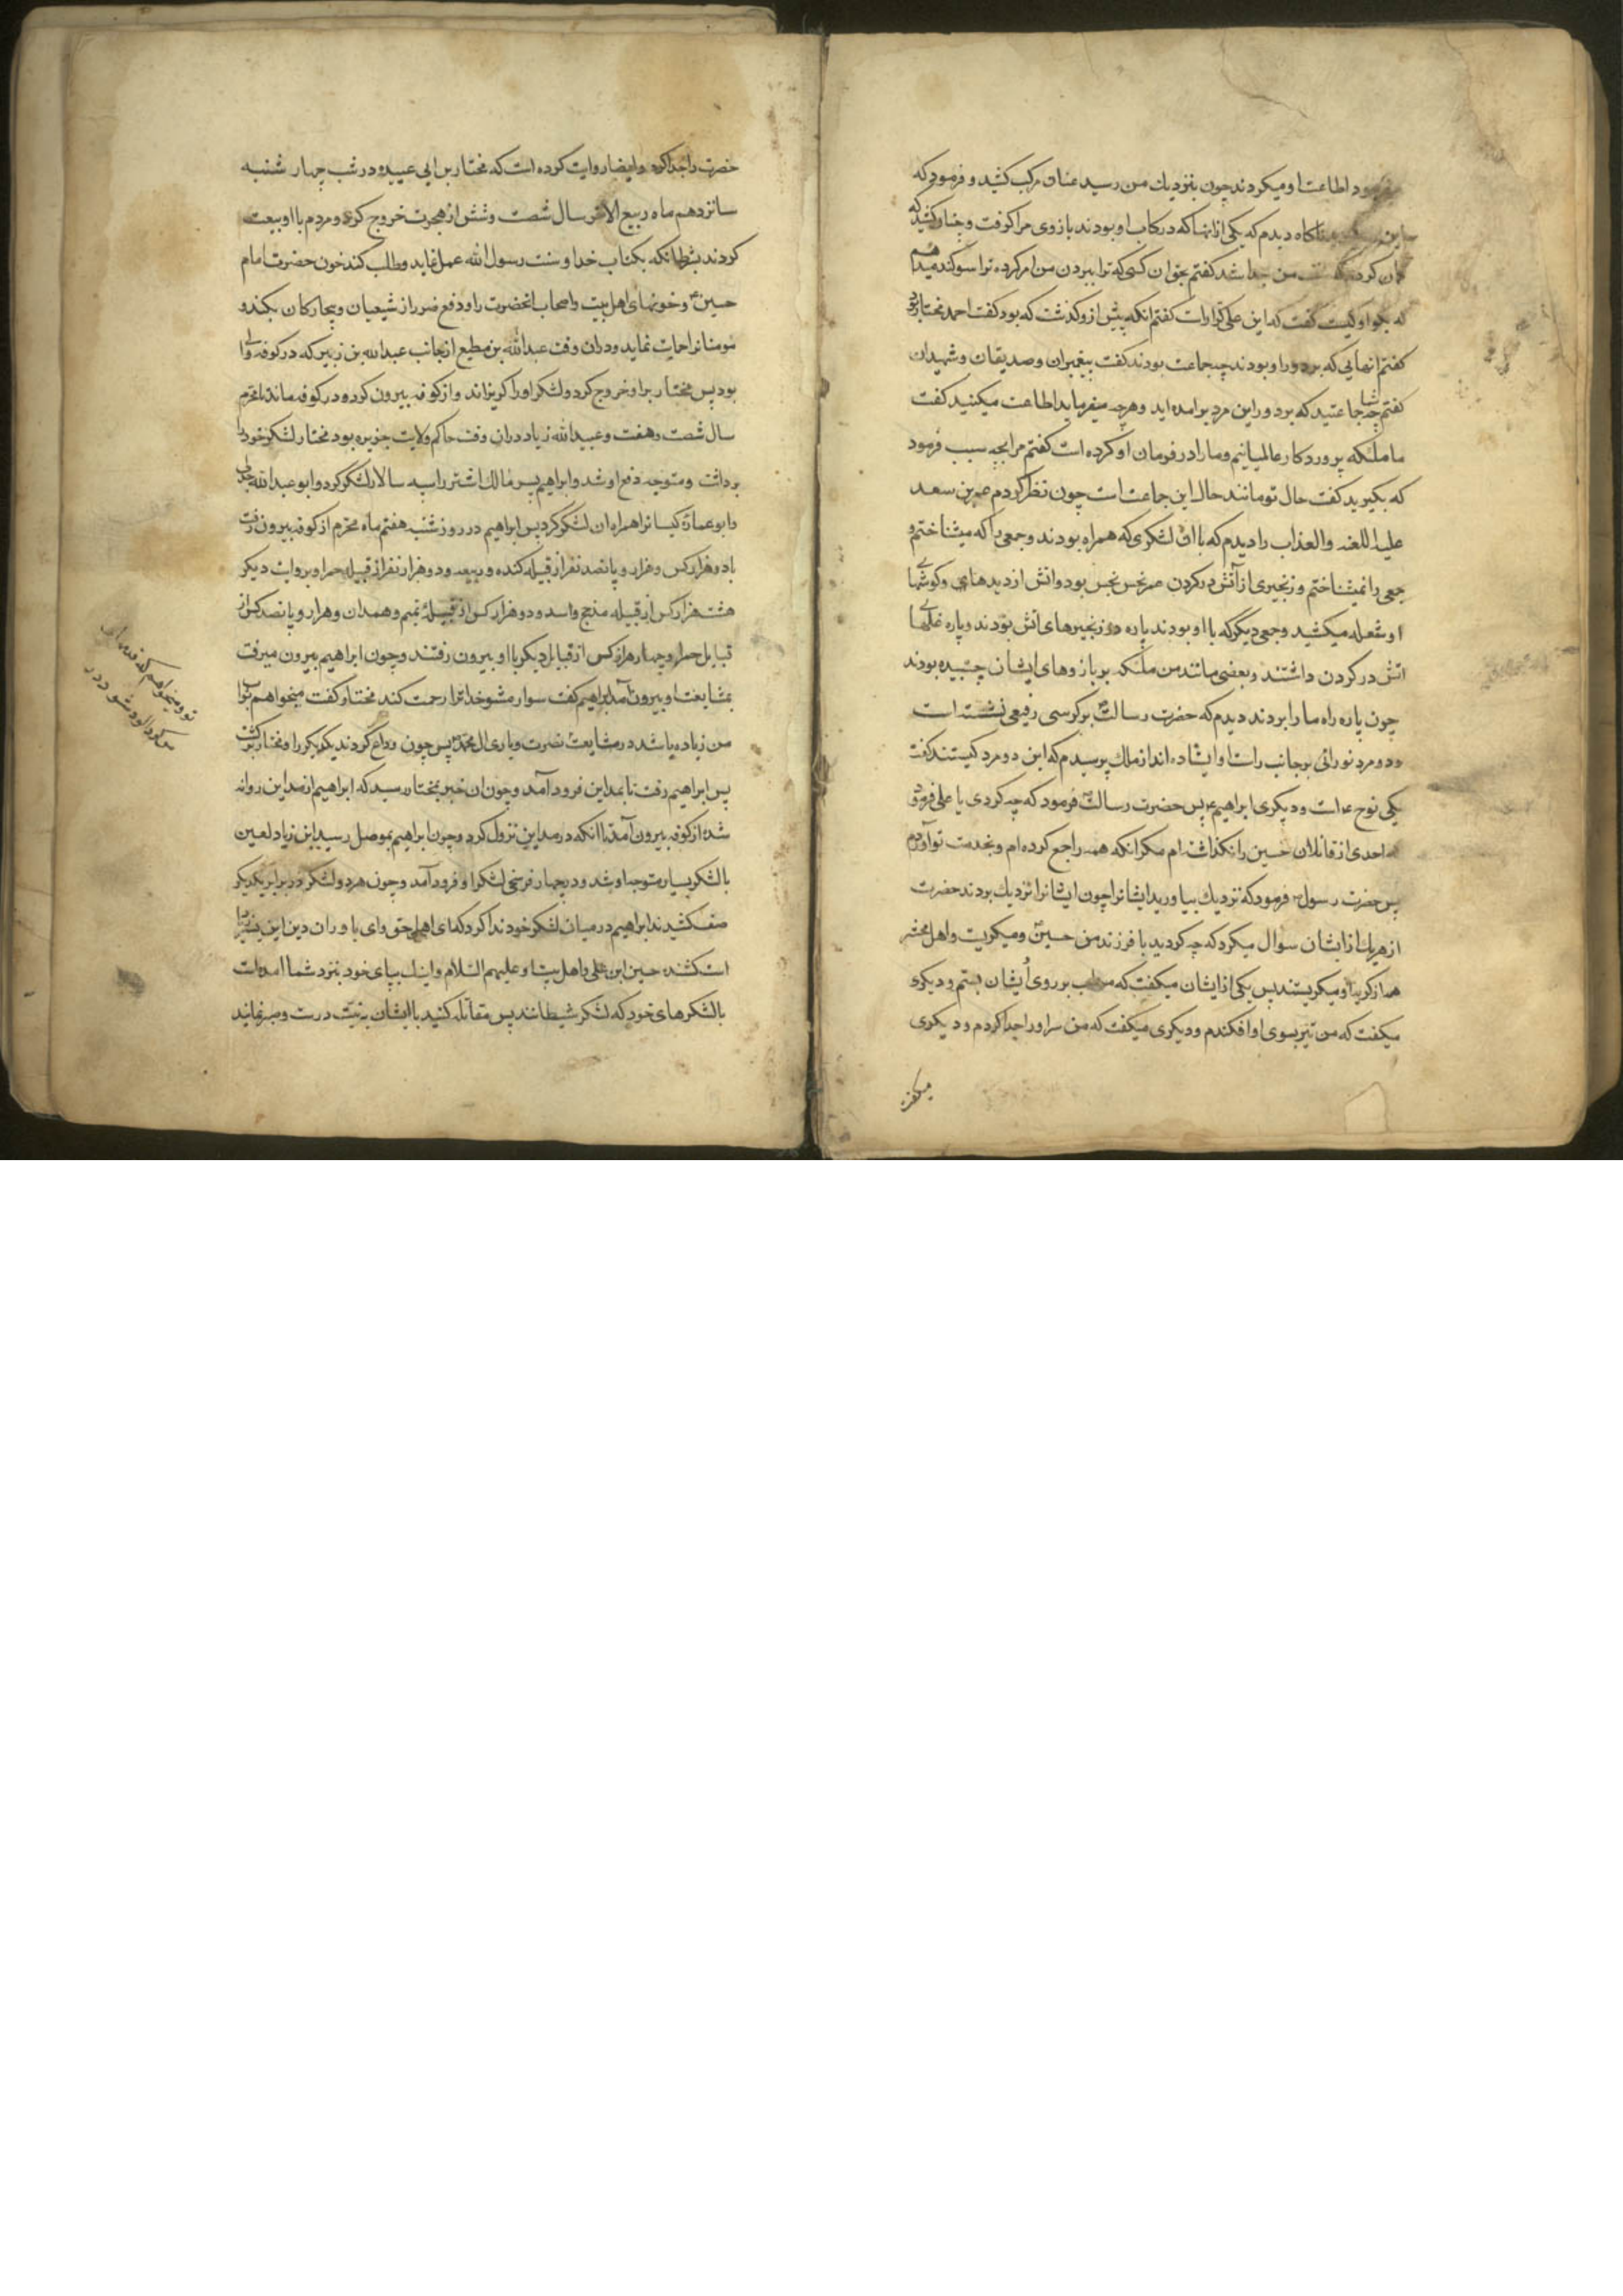 میفرمود اطاعت او میکردند چون بنزدیك من رسید عنان مرکب کشید و فرمود که
این را بگیرید ناکاه دیدم که یکی ازانها که در رکاب او بودند بازوی مرا کرفت و چنان کشید که
کمان کردم که کتف من جدا شد کفتم بحق ان کسی که ترا ببردن من امر کرده ترا سوکند میدهم
که بکو او کیست کفت که این علی کرارات کفتم انکه پیش ازو کذشت که بود کفت احمد مختار بود
کفتم انهایی که بردور او بودند چه جماعت بودند کفت پیغمبران و صدیقان و شهیدان
کفتم شما چه جماعتید که بردور این مرد برامده اید و هرچه میفرماید اطاعت میکنید کفت
ما ملئکه پروردکار عالمیانیم و ما را در فرمان او کرده است کفتم مرا بچه سبب فرمود
که بکیرید کفت حال تو مانند حال این جماعت است چون نظر کردم عمر بن سعد
علیه اللعنه والعذاب را دیدم که با ان لشکری که همراه بودند و جمعی را که میشناختم و
جمعی را نمیشناختم و زنجیری از آتش در کردن عمر نحس نجس بود و اتش از دیدهای و کوشهای
او شعله میکشید و جمعی دیکر که با او بودند پاره در زنجیرهای اتش بودند و پاره غلهای
اتش در کردن داشتند و بعضی مانند من ملئکه بر بازوهای ایشان چسبیده بودند
چون پاره راه ما را بردند دیدم که حضرت رسالت بر کرسی رفیعی نشسته است
و دو مرد نورانی بر جانب راست او ایستاده اند از ملك پرسیدم که این دو مرد کیستند کفت
یکی نوح ع است و دیکری ابراهیم ع پس حضرت رسالت فرمود که چه کردی یا علی فرمود
که احدی از قاتلان حسین را نکذاشته ام مکر انکه همه را جمع کرده ام و بخدمت تو آوردم
پس حضرت رسول فرمود که نزدیك بیاورید ایشانرا چون ایشانرا نزدیك بردند حضرت
از هریك از ایشان سوال میکرد که چه کردید با فرزند من حسین و میکریست و اهل محشر
همه از کریه او میکریستند پس یکی از ایشان میکفت که من اب بر روی ایشان بستم و دیکری
میکفت که من تیر بسوی او افکندم و دیکری میکفت که من سر او را جدا کردم و دیکری
میکفت
حضرت را جدا کرد و ایضا روایت کرده است که مختار بن ابی عبیده در شب چهار شنبه
شانزدهم ماه ربیع الاخر سال شصت و شش از هجرت خروج کرد و مردم با او بیعت
کردند بشرط انکه بکتاب خدا و سنت رسول الله عمل نماید و طلب کند خون حضرت امام
حسین و خونهای اهل بیت و اصحاب انحضرت را و دفع ضرر از شیعیان و بیچارکان بکند و
مومنانرا حمایت نماید و دران وقت عبدالله بن مطیع از جانب عبدالله بن زبیر که در کوفه والی
بود پس مختار براو خروج کرد و لشکر او را کریزاند و از کوفه بیرون کرد و در کوفه ماند تا محرم
سال شصت و هفت و عبیدالله زیاد دران وقت حاکم ولایت جزیره بود مختار لشکر خود را
برداشت و متوجه دفع او شد و ابراهیم پسر مالك اشتر را سپه سالار لشکر کرد و ابو عبدالله جدلی
و ابو عماره کیسانرا همراه ان لشکر کرد پس ابراهیم در روز شنبه هفتم ماه محرم از کوفه بیرون رفت
با دو هزار کس و هزار و پانصد نفر از قبیله کنده و ربیعه و دو هزار نفر از قبیله حمرا و بروایت دیکر
هشت هزار کس از قبیله مذحج و اسد و دو هزار کس از قبیله تمیم و همدان و هزار و پانصد کس از
قبایل حمرا و چهار هزار کس از قبایل دیکر با او بیرون رفتند و چون ابراهیم بیرون میرفت
بمشایعت او بیرون آمد ابراهیم کفت سوار مشو خدا ترا رحمت کند مختار کفت میخواهم ثواب
من زیاده باشد در مشایعت نصرت و یاری ال محمد پس چون وداع کردند یکدیکر را و مختار برکشت
پس ابراهیم رفت تا بمداین فرود آمد و چون ان خبر بمختار رسید که ابراهیم از مداین روانه
شد از کوفه بیرون آمد تا انکه در مداین نزول کرد و چون ابراهیم بموصل رسید ابن زیاد لعین
با لشکر بسیار متوجه او شد و در چهار فرسخی لشکر او فرود آمد و چون هر دو لشکر در برابر یکدیکر
صف کشیدند ابراهیم در میان لشکر خود ندا کرد که ای اهل حق و ای یاوران دین این پسر زیاد
است کشنده حسین ابن علی و اهل بیت او علیهم السلام و اینك بپای خود بنزد شما امده است
با لشکرهای خود که لشکر شیطانند پس مقاتله کنید با ایشان به نیت درست و صبر نمائید
تو و میخواهم که قدمهای
من کردالود شود در